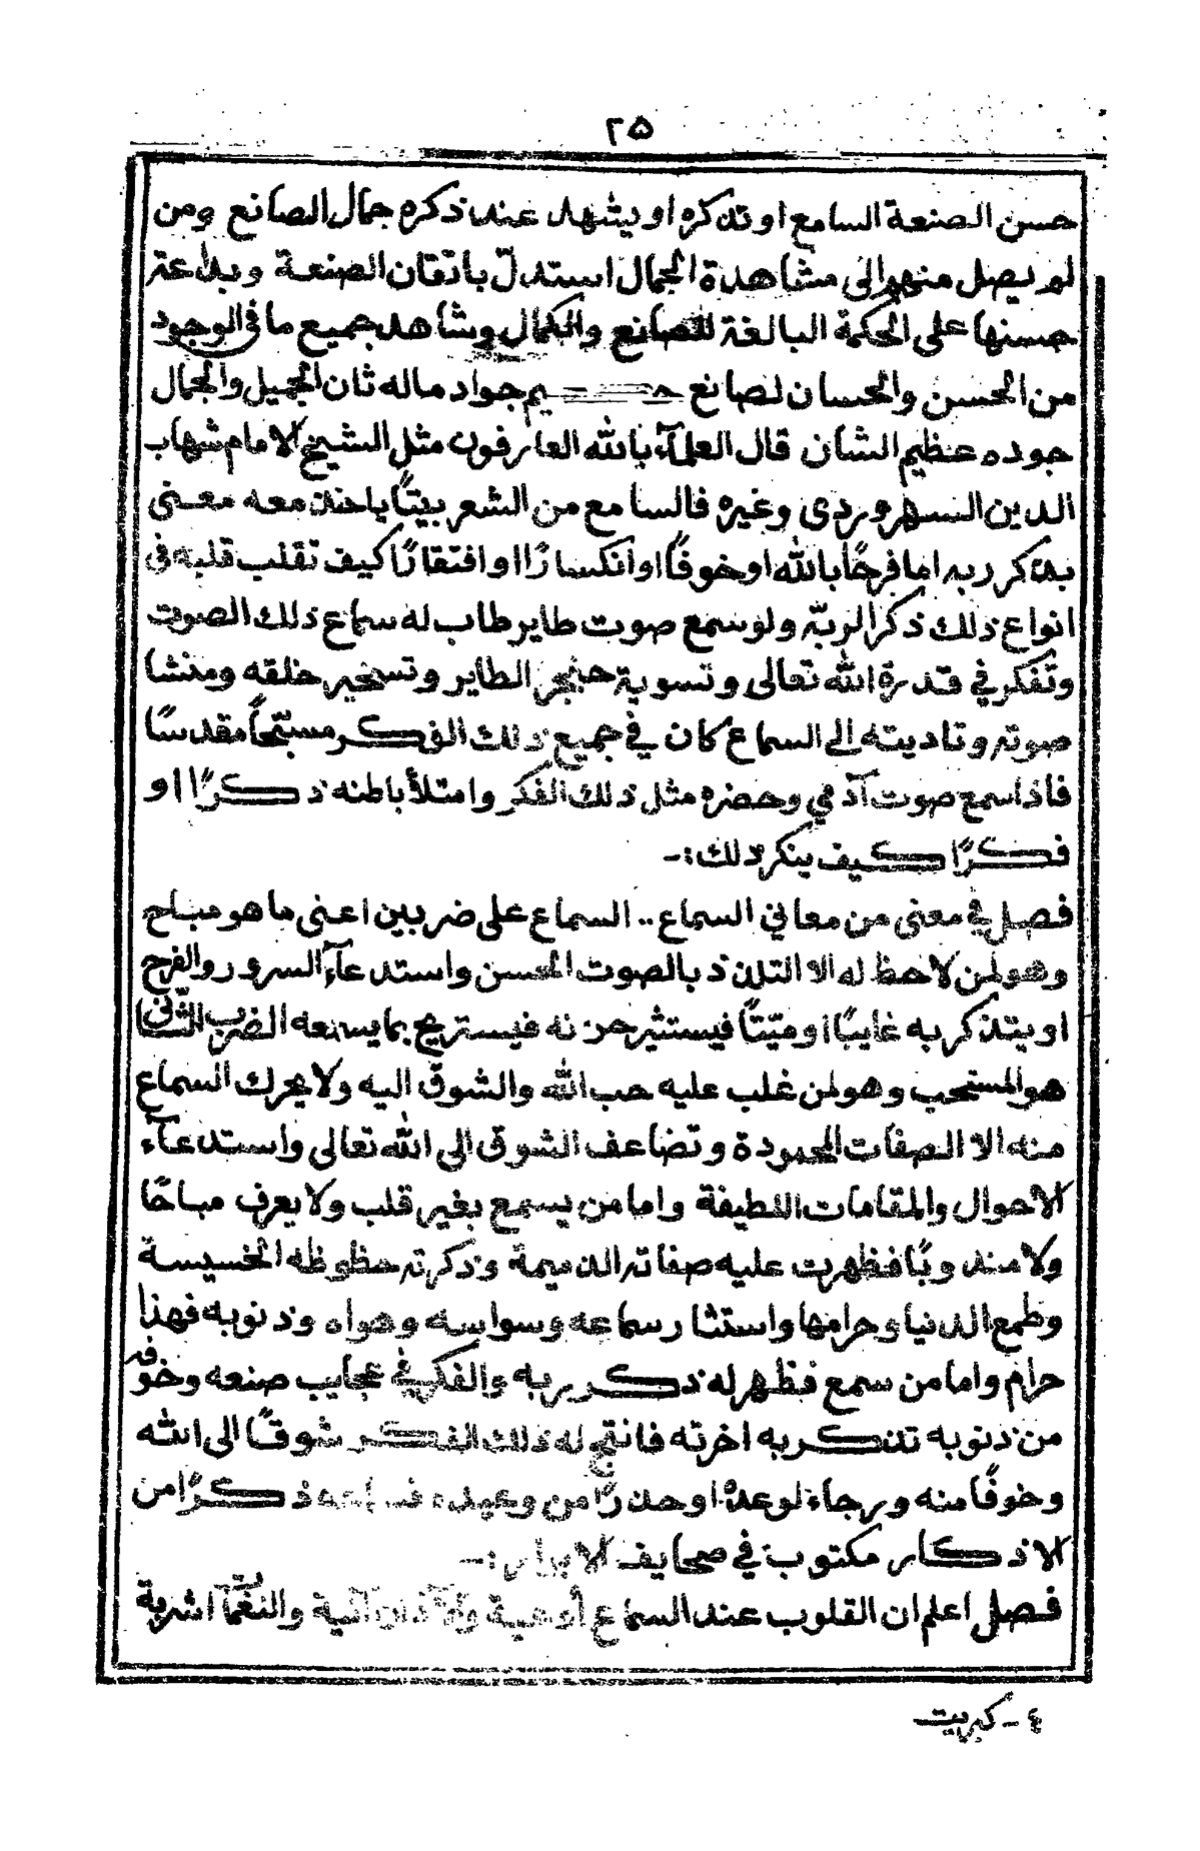 ٢٥
حسن الصنعة السامع او تذكره او يشهد عند ذكره جمال الصانع ومن
لم يصل منهم الى مشاهدة الجمال استدل باتقان الصنعة وبداعة
حسنها على الحكمة البالغة للصانع والكمال وشاهد جميع ما فى الوجود
من الحسن والحسان لصانع يم جواد ماله ثان الجميل والجمال
جوده عظيم الشان قال العلمآء بالله العارفون مثل الشيخ الامام شهاب
الدين السهروردى وغيره فالسامع من الشعر بيتًا ياخذ معه معنى
يذكر ربه اما فرحًا بالله او خوفًا او انكسارًا او افتقارًا كيف تقلب قلبه فى
انواع ذلك ذكر الربّه ولو سمع صوت طاير طاب له سماع ذلك الصوت
وتفكر في قدرة الله تعالى وتسوية حنجر الطاير وتسخير خلقه ومنشا
صوته وتاديته الى السماع كان في جميع ذلك الفكر مسبّحًا مقدسًا
فاذا سمع صوت آدمي وحضره مثل ذلك الفكر وامتلأ باطنه ذكرًا او
فكرًا كيف ينكر ذلك :-
فصل في معنى من معاني السماع .. السماع على ضربين اعنى ما هو مباح
وهو لمن لاحظ له الا التلذذ بالصوت الحسن واستدعآء السرور والفرح
او يتذكر به غايبًا او ميّتًا فيستثير حزنه فيستريح بما يسمعه الضرب الثانى
هو المستحب وهو لمن غلب عليه حب الله والشوق اليه ولا يحرك السماع
منه الا الصفات المحمودة وتضاعف الشوق الى الله تعالى واستدعآء
الاحوال والمقامات اللطيفة واما من يسمع بغير قلب ولا يعرف مباحًا
ولا مندوبًا فظهرت عليه صفاته الذميمة وذكرته حظوظه الخسيسة
وطمع الدنيا وحرامها واستثار سماعه وسواسه وهواه وذنوبه فهذا
حرام واما من سمع فظهر له ذكر ربه والفكر في عجايب صنعه وخوفه
من ذنوبه تذكر به اخرته فانتج له ذلك الفكر شوقًا الى الله
وخوفًا منه ورجاء لوعده او حذرًا من وعيده فسماعه ذكرًا من
الاذكار مكتوب في صحايف الابرار :-
فصل اعلم ان القلوب عند السماع أوعية والآذان آنية والنغمات اشربة
٤ - كبريت